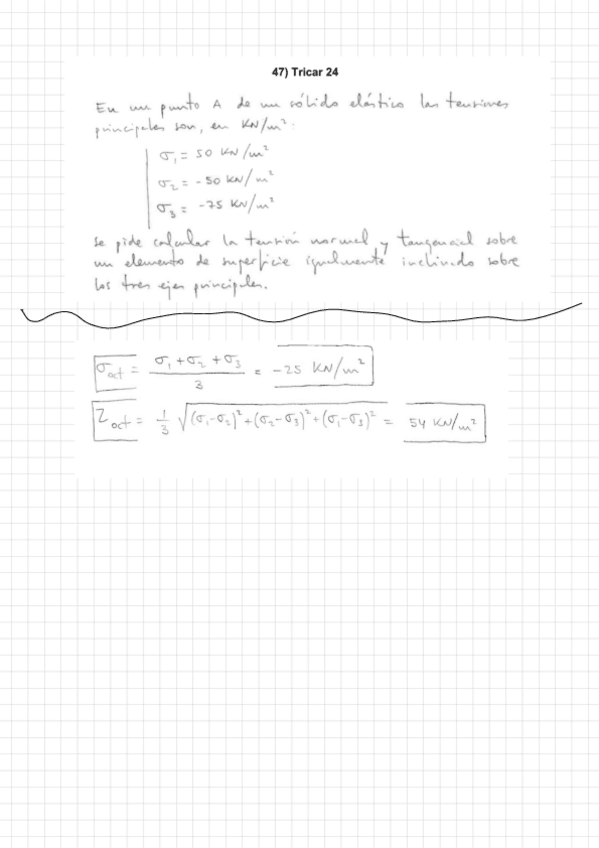 47) Tricar 24
En un punto A de un sólido elástico las tensiones
principales son, en KN/m²:
σ₁ = 50 KN/m²
σ₂ = -50 KN/m²
σ₃ = -75 KN/m²
se pide calcular la tensión normal y tangencial sobre
un elemento de superficie igualmente inclinado sobre
los tres ejes principales.
σoct = (σ₁ + σ₂ + σ₃)/3 = -25 KN/m²
Zoct = 1/3 √((σ₁-σ₂)² + (σ₂-σ₃)² + (σ₁-σ₃)²) = 54 KN/m²